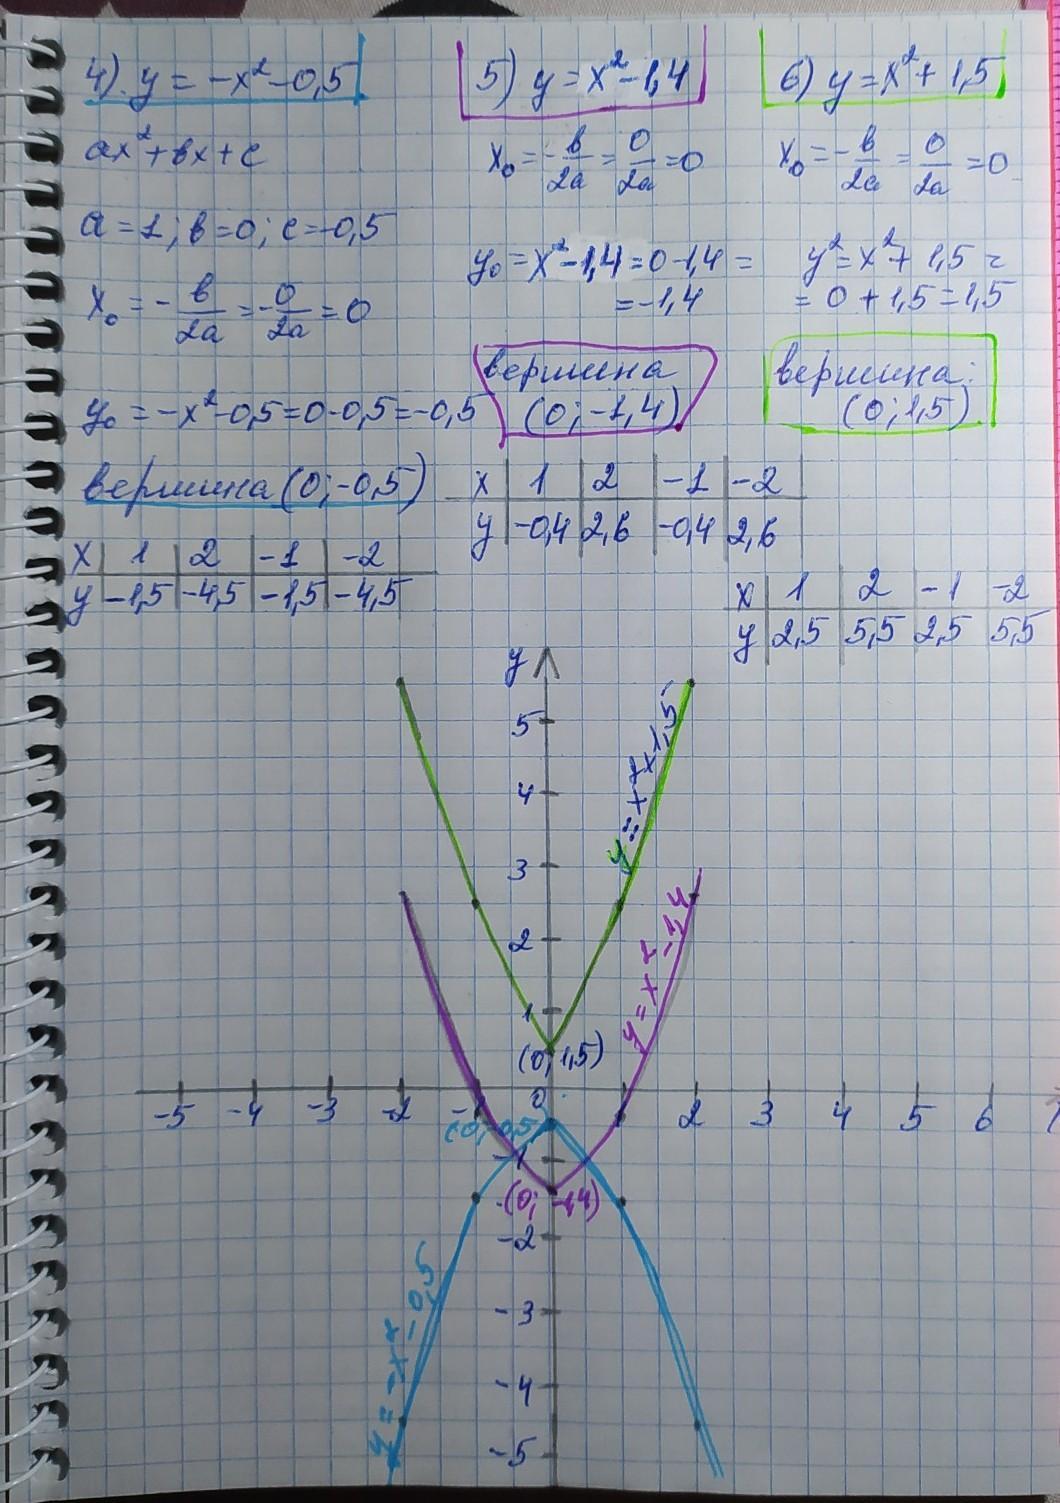 4). y = -x² - 0,5
ax² + вx + c
a = 1; в = 0; c = -0,5
x₀ = -в/2a = -0/2a = 0
y₀ = -x² - 0,5 = 0 - 0,5 = -0,5
вершина (0; -0,5)
x | 1 | 2 | -1 | -2
y | -1,5 | -4,5 | -1,5 | -4,5
5) y = x² - 1,4
x₀ = -в/2a = 0/2a = 0
y₀ = x² - 1,4 = 0 - 1,4 =
= -1,4
вершина
(0; -1,4)
x | 1 | 2 | -1 | -2
y | -0,4 | 2,6 | -0,4 | 2,6
6) y = x² + 1,5
x₀ = -в/2a = 0/2a = 0
y² = x² + 1,5 =
= 0 + 1,5 = 1,5
вершина:
(0; 1,5)
x | 1 | 2 | -1 | -2
y | 2,5 | 5,5 | 2,5 | 5,5
y
5
4
3
2
1
(0; 1,5)
0
-5 -4 -3 -2 -1 2 3 4 5 6
(0; -0,5)
-1
(0; -1,4)
-2
-3
-4
-5
y = x² - 1,4
y = -x² - 0,5